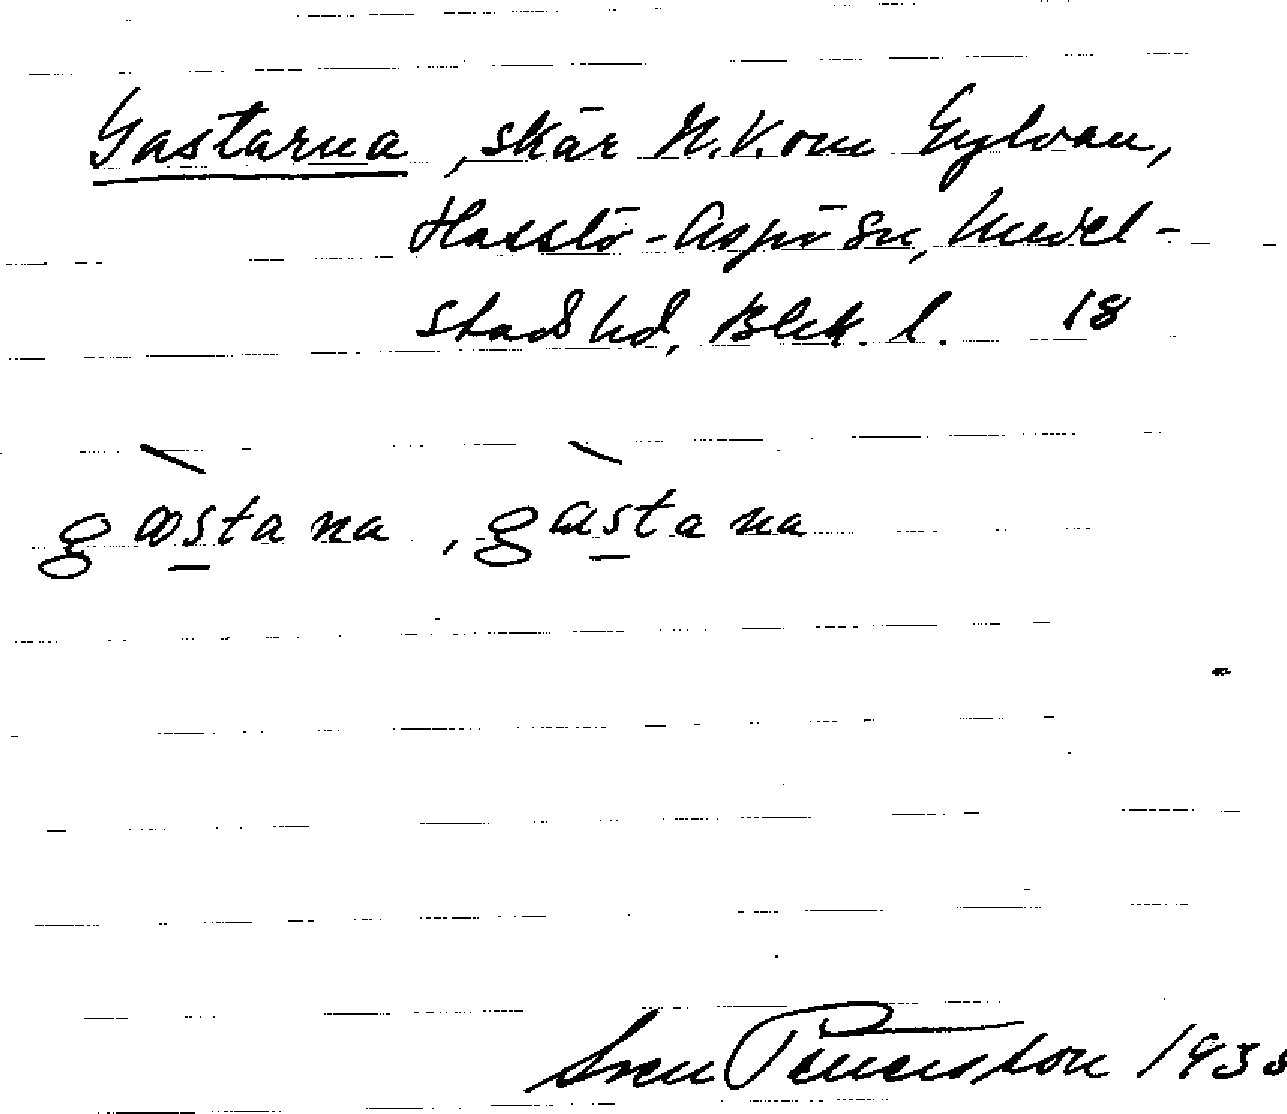 Gastarna, skär N.V. om Gylvan,
Hasslö-Aspö sn, Medel-
stads hd, Blek. l. 18
gastana, gastana
Sven 193